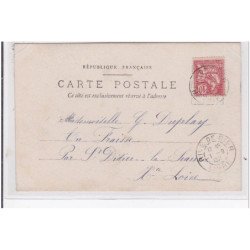 RÉPUBLIQUE FRANÇAISE
CARTE POSTALE
Ce côté est exclusivement réservé à l'adresse
Mademoiselle G. Duplay
En Fraisse
Par St Didier la Seauve
Hte Loire